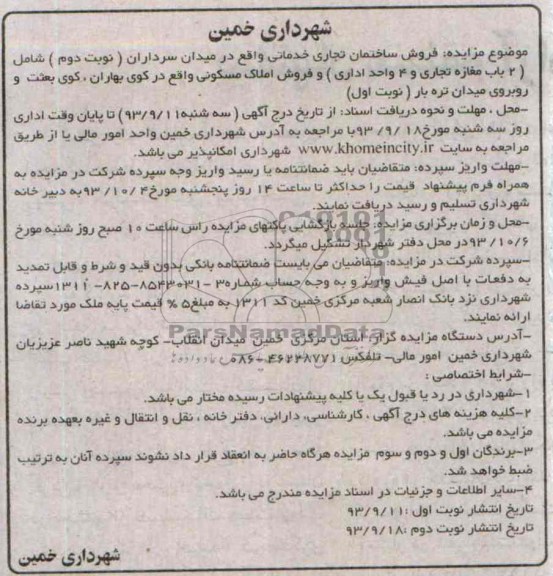 شهرداری خمین
موضوع مزایده: فروش ساختمان تجاری خدماتی واقع در میدان سرداران ( نوبت دوم ) شامل
( ۲ باب مغازه تجاری و ۴ واحد اداری ) و فروش املاک مسکونی واقع در کوی بهاران ، کوی بعثت و
روبروی میدان تره بار ( نوبت اول)
-محل ، مهلت و نحوه دریافت اسناد: از تاریخ درج آگهی ( سه شنبه۹۳/۹/۱۱) تا پایان وقت اداری
روز سه شنبه مورخ۱۸ /۹/ ۹۳با مراجعه به آدرس شهرداری خمین واحد امور مالی یا از طریق
مراجعه به سایت www.khomeincity.ir شهرداری امکانپذیر می باشد.
-مهلت واریز سپرده: متقاضیان باید ضمانتنامه یا رسید واریز وجه سپرده شرکت در مزایده به
همراه فرم پیشنهاد قیمت را حداکثر تا ساعت ۱۴ روز پنجشنبه مورخ۴ /۱۰/ ۹۳به دبیر خانه
شهرداری تسلیم و رسید دریافت نمایند.
-محل و زمان برگزاری مزایده: جلسه بازگشایی پاکتهای مزایده راس ساعت ۱۰ صبح روز شنبه مورخ
۹۳/۱۰/۶در محل دفتر شهردار تشکیل میگردد.
-سپرده شرکت در مزایده: متقاضیان می بایست ضمانتنامه بانکی بدون قید و شرط و قابل تمدید
به دفعات یا اصل فیش واریز و به وجه حساب شماره۳ -۸۵۴۳۰۳۱-۸۲۵- ۱۳۱۱سپرده
شهرداری نزد بانک انصار شعبه مرکزی خمین کد ۱۳۱۱به مبلغ۵ % قیمت پایه ملک مورد تقاضا
ارائه نمایند.
-آدرس دستگاه مزایده گزار: استان مرکزی خمین میدان انقلاب- کوچه شهید ناصر عزیزیان
شهرداری خمین امور مالی- تلفکس ۴۶۲۳۸۷۷۱ -۰۸۶
-شرایط اختصاصی :
۱-شهرداری در رد یا قبول یک یا کلیه پیشنهادات رسیده مختار می باشد.
۲-کلیه هزینه های درج آگهی ، کارشناسی، دارائی، دفتر خانه ، نقل و انتقال و غیره بعهده برنده
مزایده می باشد.
۳-برندگان اول و دوم و سوم مزایده هرگاه حاضر به انعقاد قرار داد نشوند سپرده آنان به ترتیب
ضبط خواهد شد.
۴-سایر اطلاعات و جزئیات در اسناد مزایده مندرج می باشد.
تاریخ انتشار نوبت اول :۹۳/۹/۱۱
تاریخ انتشار نوبت دوم :۹۳/۹/۱۸
شهرداری خمین
ParsNamadData